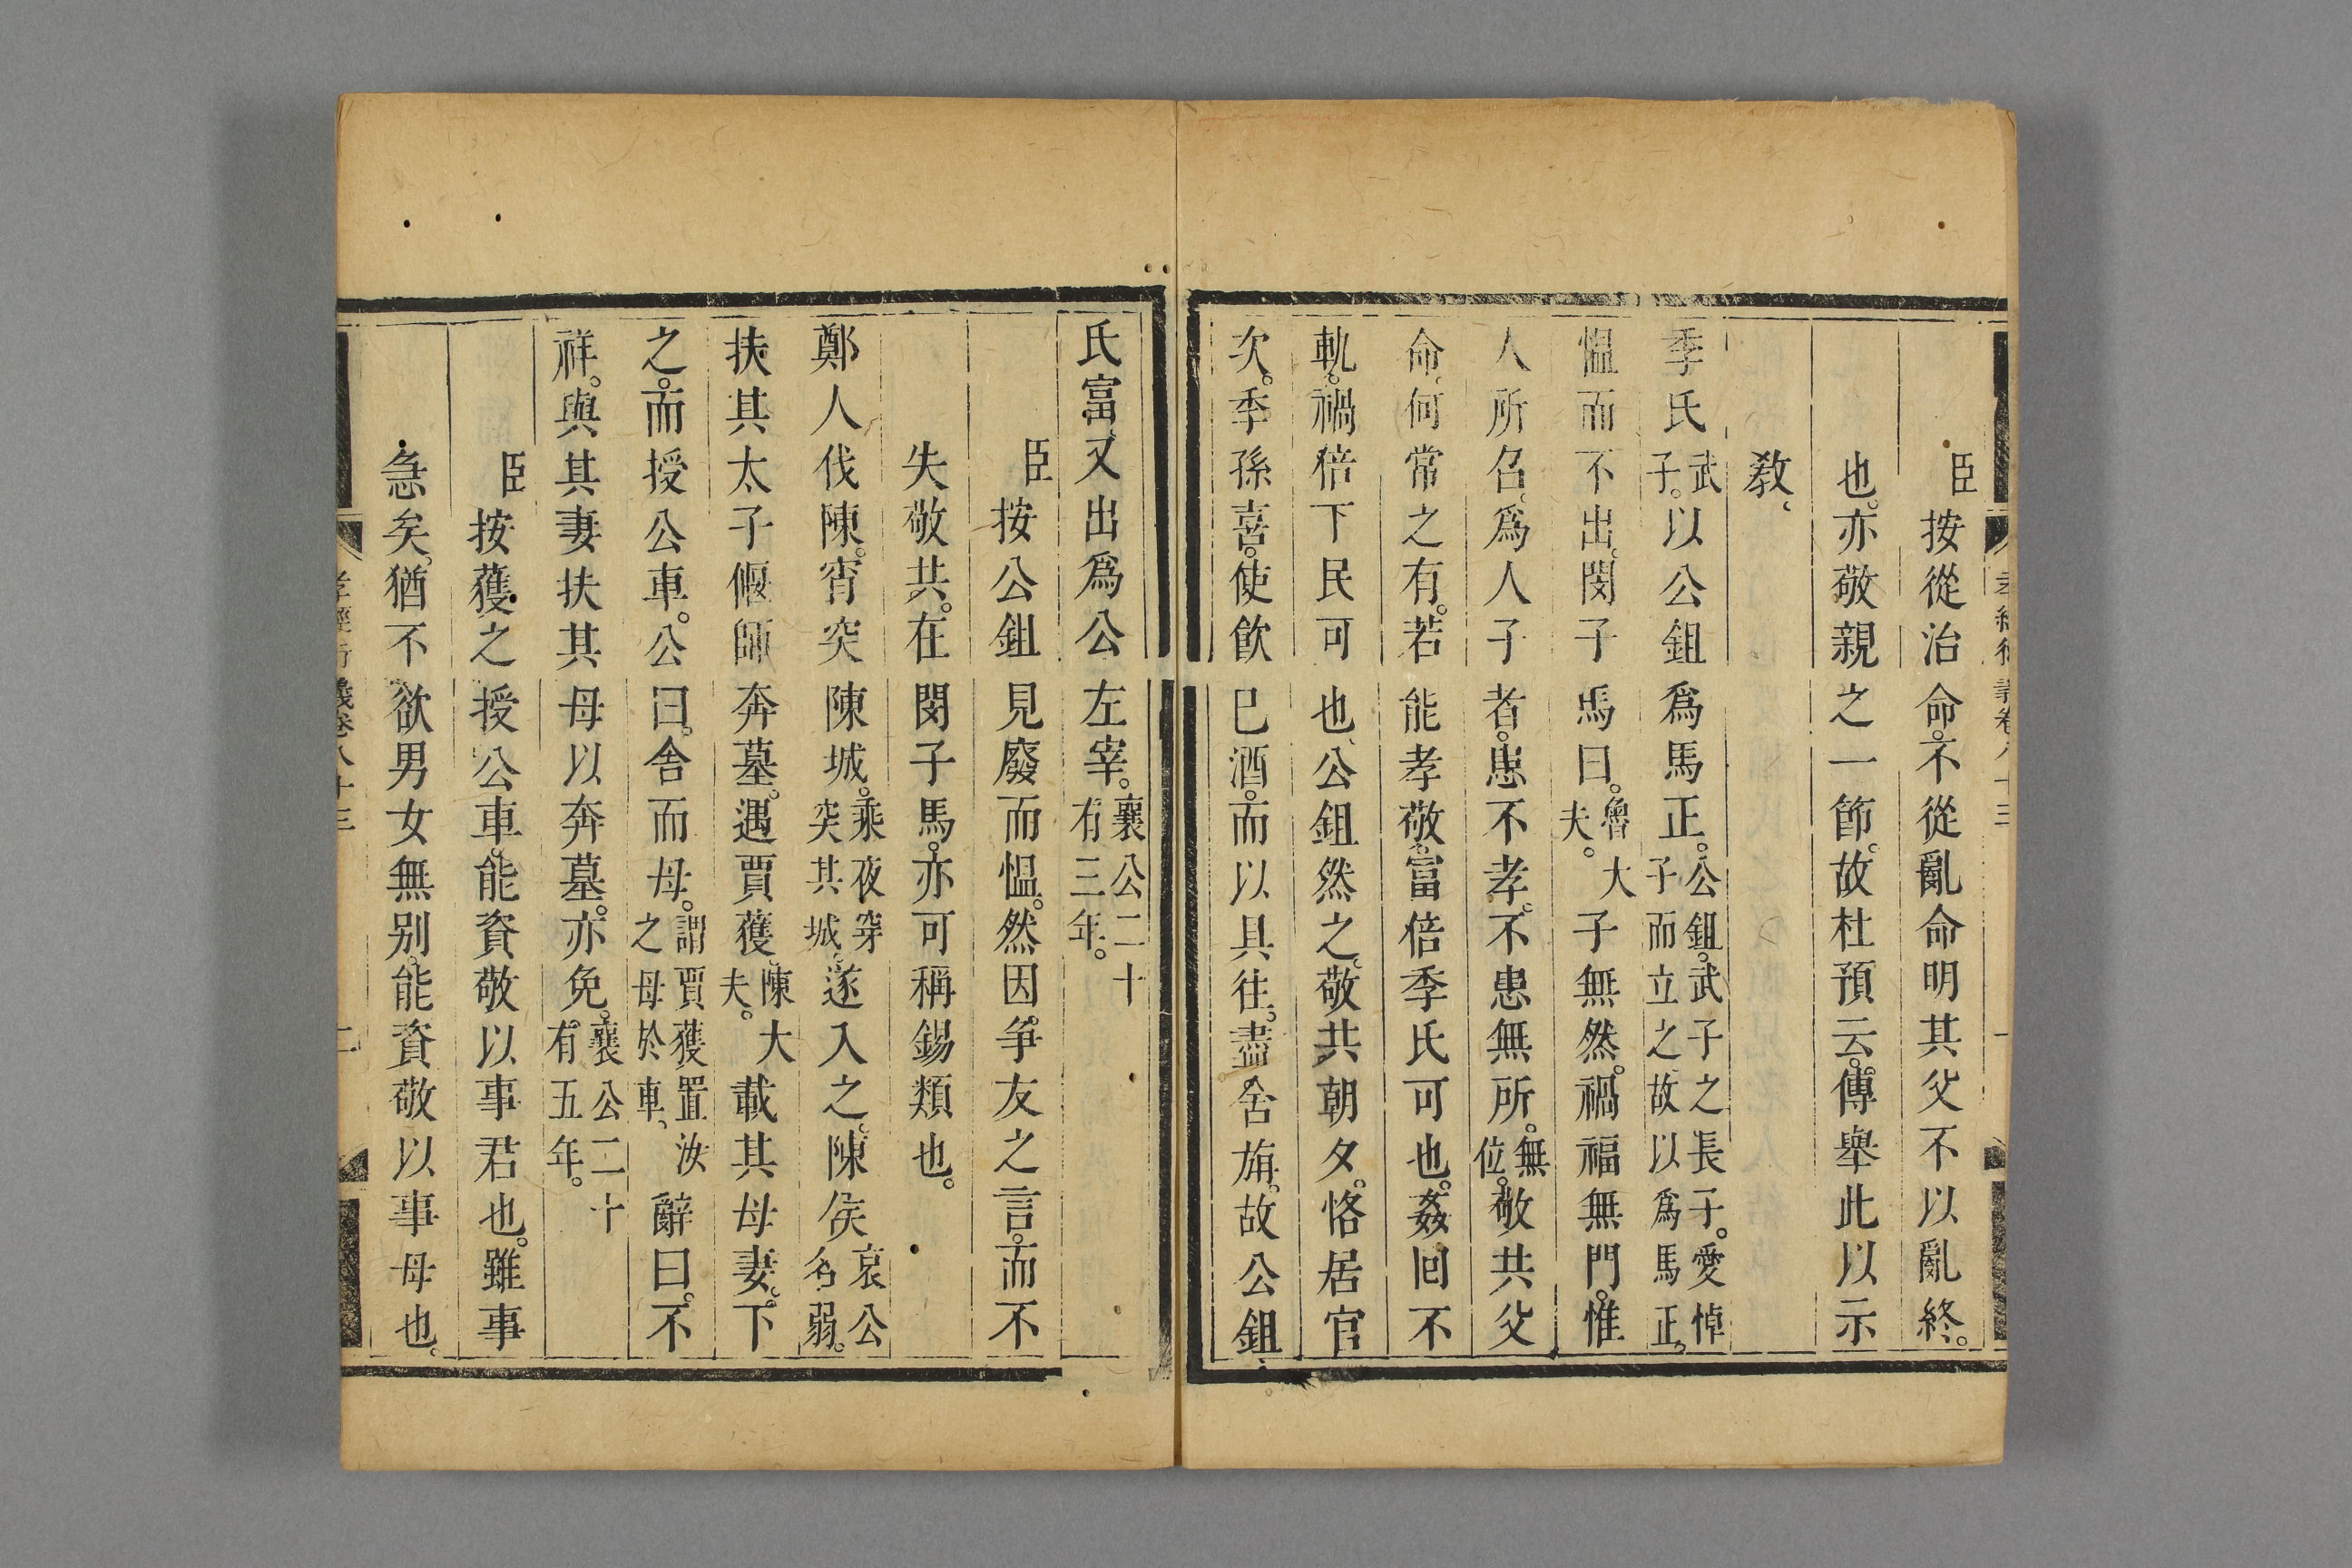 臣按從治命。不從亂命。明其父不以亂終。
也。亦敬親之一節。故杜預云。傳舉此以示
教、
季氏武子。以公鉏爲馬正。公鉏。武子之長子。愛悼子而立之、故以爲馬正。
愠而不出。閔子馬曰。魯大夫。子無然。禍福無門。惟
人所召、爲人子者。患不孝。不患無所。無位。敬共父
命、何常之有。若能孝敬。富倍季氏可也。姦回不
軌。禍倍下民可也、公鉏然之。敬共朝夕。恪居官
次。季孫喜。使飲已酒。而以具往。盡舍旃。故公鉏、
氏富、又出爲公左宰。襄公二十有三年。
臣按公鉏見廢而愠。然因爭友之言。而不
失敬共。在閔子馬。亦可稱錫類也。
鄭人伐陳。宵突陳城。乘夜穿突其城。遂入之。陳侯哀公名弱。
扶其太子偃師奔墓。遇賈獲。陳大夫。載其母妻。下
之。而授公車。公曰。舍而母。謂賈獲置汝之母於車、辭曰。不
祥。與其妻扶其母以奔墓。亦免。襄公二十有五年。
臣按獲之授公車。能資敬以事君也。雖事
急矣。猶不欲男女無别。能資敬以事母也。
孝經衍義卷八十三 二